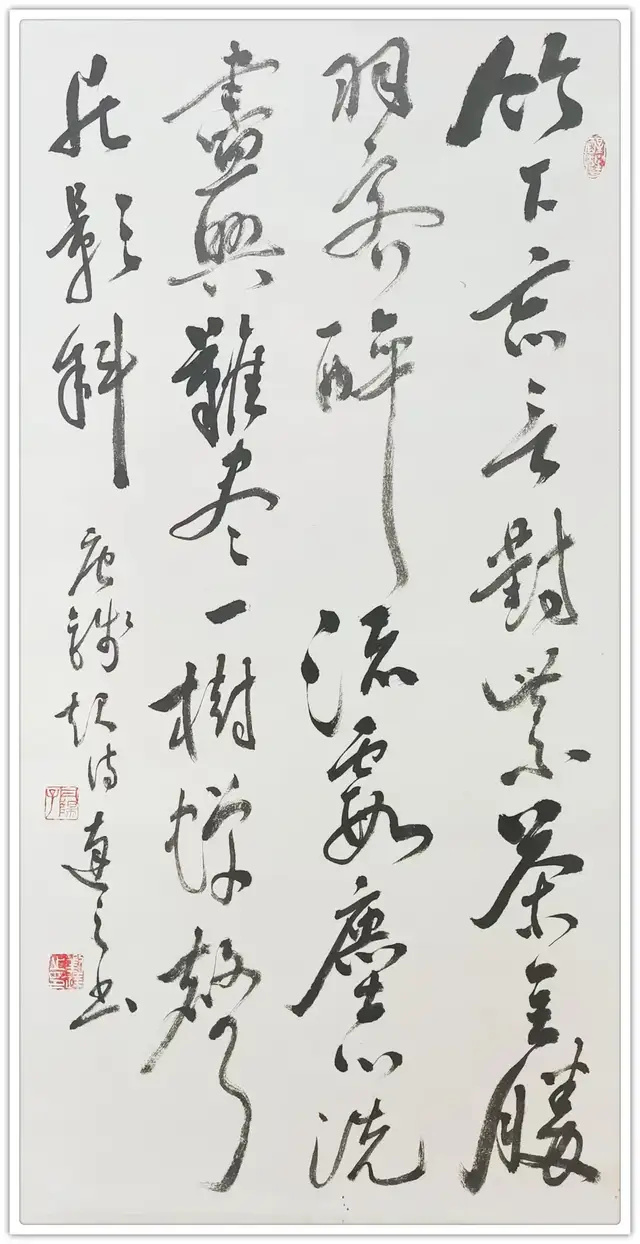 竹下忘言對紫茶全勝
羽客醉流霞塵心洗
盡興難尽一樹蟬聲
片影斜
唐錢起詩 之书